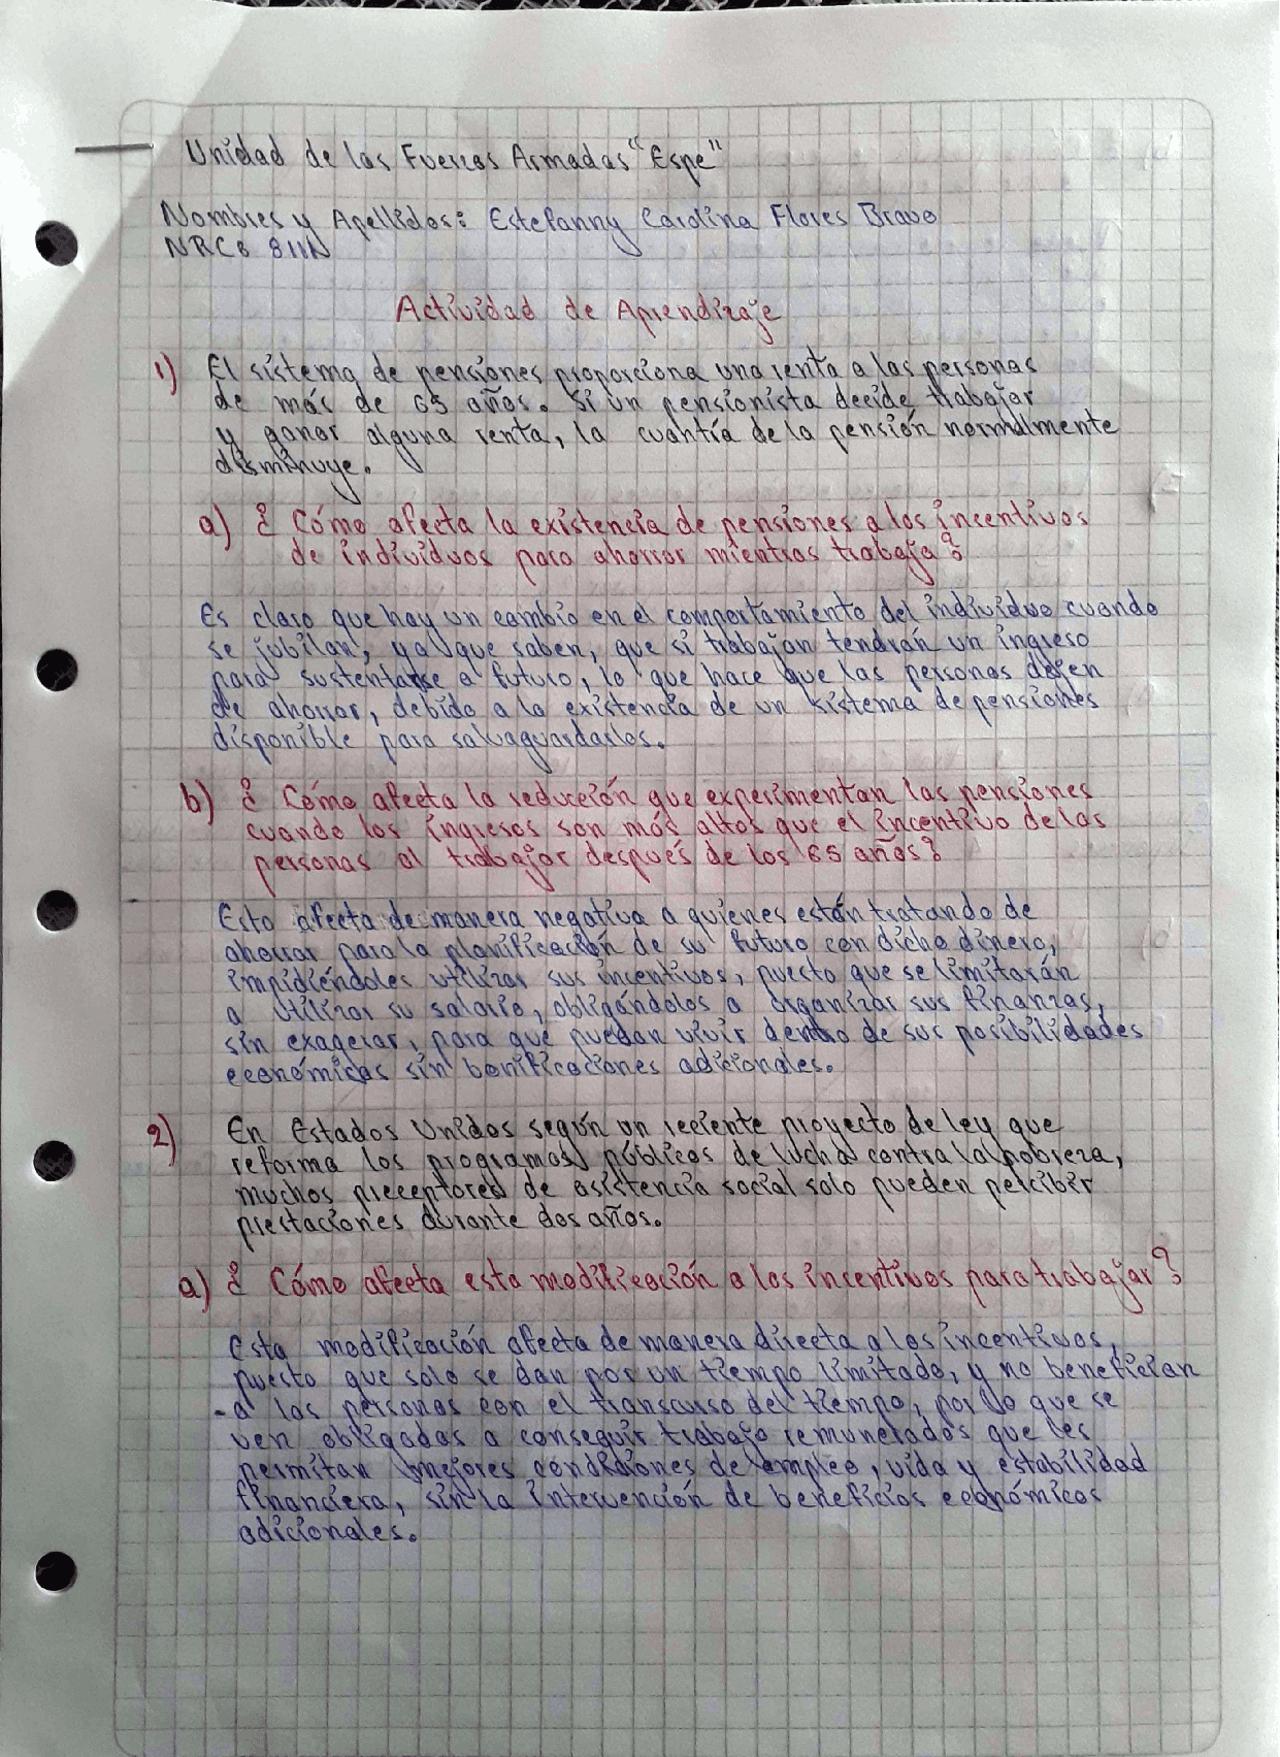 Unidad de las Fuerzas Armadas "Espe"
Nombres y Apellidos: Estefanny Carolina Flores Bravo
NRC: 8111
Actividad de Aprendizaje
1) El sistema de pensiones proporciona una renta a las personas
de más de 65 años. Si un pensionista decide trabajar
y ganar alguna renta, la cuantía de la pensión normalmente
disminuye.
a) ¿ Cómo afecta la existencia de pensiones a los incentivos
de individuos para ahorrar mientras trabaja?
Es claro que hay un cambio en el comportamiento del individuo cuando
se jubilan, ya que saben, que si trabajan tendrán un ingreso
para sustentarse a futuro, lo que hace que las personas dejen
de ahorrar, debido a la existencia de un sistema de pensiones
disponible para salvaguardarlos.
b) ¿ Cómo afecta la reducción que experimentan las pensiones
cuando los ingresos son más altos que el incentivo de las
personas al trabajar después de los 65 años?
Esto afecta de manera negativa a quienes están tratando de
ahorrar para la planificación de su futuro con dicho dinero,
impidiéndoles utilizar sus incentivos, puesto que se limitarán
a utilizar su salario, obligándolos a organizar sus finanzas,
sin exagerar, para que puedan vivir dentro de sus posibilidades
económicas sin bonificaciones adicionales.
2) En Estados Unidos según un reciente proyecto de ley que
reforma los programas públicos de lucha contra la pobreza,
muchos preceptores de asistencia social solo pueden percibir
prestaciones durante dos años.
a) ¿ Cómo afecta esta modificación a los incentivos para trabajar?
Esta modificación afecta de manera directa a los incentivos,
puesto que solo se dan por un tiempo limitado, y no benefician
a las personas con el transcurso del tiempo, por lo que se
ven obligadas a conseguir trabajo remunerados que les
permitan mejores condiciones de empleo, vida y estabilidad
financiera, sin la intervención de beneficios económicos
adicionales.